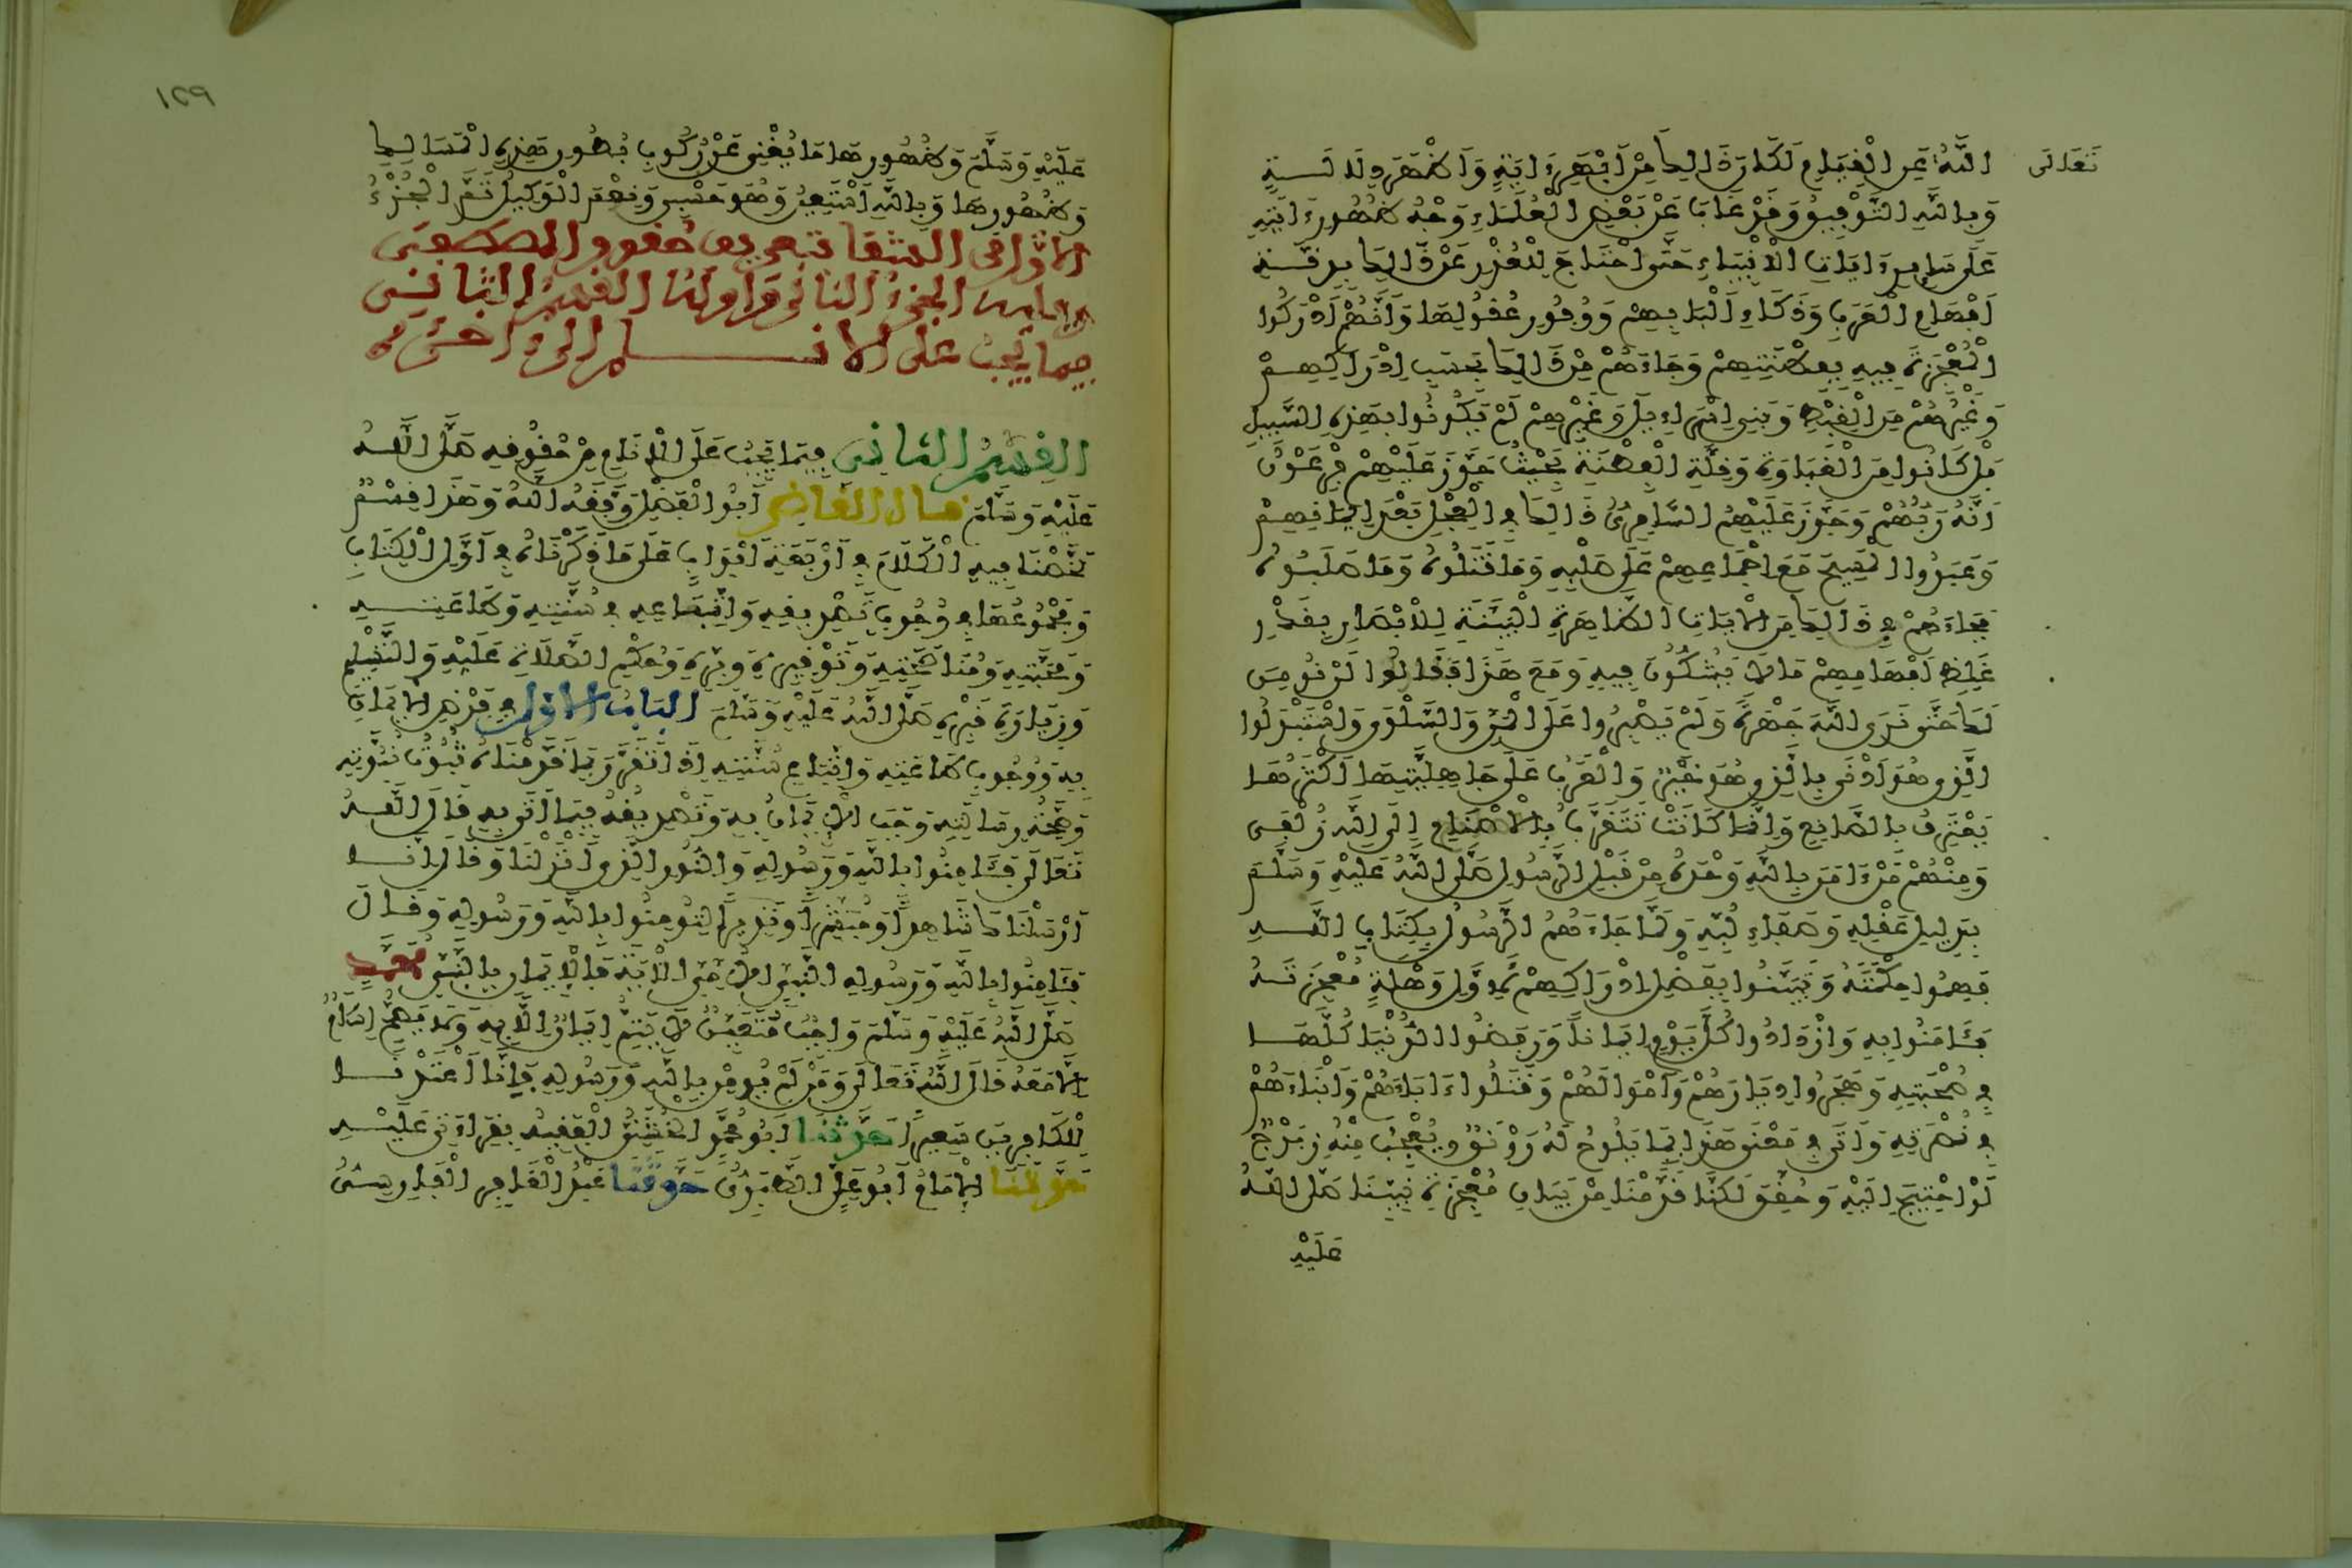 تعالى
اللَّهُ عَنِ الْقِيَامِ لَكَانَ ذَالِكَ مِنْ أَبْهَرِ ءَايَةٍ وَأَظْهَرِ دِلَالَةٍ
وَبِاللَّهِ التَّوْفِيقُ وَقَدْ غَابَ عَنْ بَعْضِ الْعُلَمَاءِ وَجْهُ ظُهُورِ ءَايَتِهِ
عَلَى سَائِرِ ءَايَاتِ الْأَنْبِيَاءِ حَتَّى احْتَاجَ لِلْعُذْرِ عَنْ ذَالِكَ بِدِقَّةِ
أَفْهَامِ الْعَرَبِ وَذَكَاءِ أَلْبَابِهِمْ وَوُفُورِ عُقُولِهَا وَأَنَّهُمْ أَدْرَكُوا
الْمُعْجِزَةَ فِيهِ بِفِطْنَتِهِمْ وَجَاءَهُمْ مِنْ ذَالِكَ بِحَسَبِ إِدْرَاكِهِمْ
وَغَيْرُهُمْ مِنَ الْقِبْطِ وَبَنِي إِسْرَاءِيلَ وَغَيْرِهِمْ لَمْ يَكُونُوا بِهَذِهِ السَّبِيلِ
بَلْ كَانُوا مِنَ الْغَبَاوَةِ وَقِلَّةِ الْفِطْنَةِ بِحَيْثُ جَوَّزَ عَلَيْهِمْ فِرْعَوْنُ
أَنَّهُ رَبُّهُمْ وَجَوَّزَ عَلَيْهِمُ السَّامِرِيُّ ذَالِكَ فِي الْعِجْلِ بَعْدَ إِيمَانِهِمْ
وَعَبَدُوا الْمَسِيحَ مَعَ إِجْمَاعِهِمْ عَلَى صَلْبِهِ وَمَا قَتَلُوهُ وَمَا صَلَبُوهُ
فَجَاءَهُمْ فِي ذَالِكَ مِنَ الْآيَاتِ الظَّاهِرَةِ الْبَيِّنَةِ لِلْأَبْصَارِ بِقَدْرِ
غِلَظِ أَفْهَامِهِمْ مَا لَا يَشُكُّونَ فِيهِ وَمَعَ هَذَا فَقَالُوا لَنْ نُومِنَ
لَكَ حَتَّى نَرَى اللَّهَ جَهْرَةً وَلَمْ يَصْبِرُوا عَلَى الْمَنِّ وَالسَّلْوَى وَاسْتَبْدَلُوا
الَّذِي هُوَ أَدْنَى بِالَّذِي هُوَ خَيْرٌ وَالْعَرَبُ عَلَى جَاهِلِيَّتِهَا أَكْثَرُهَا
يَعْتَرِفُ بِالصَّانِعِ وَإِنَّمَا كَانَتْ تَتَقَرَّبُ بِالْأَصْنَامِ إِلَى اللَّهِ زُلْفَى
وَمِنْهُمْ مَنْ ءَامَنَ بِاللَّهِ وَحْدَهُ مِنْ قَبْلِ الرَّسُولِ صَلَّى اللَّهُ عَلَيْهِ وَسَلَّمَ
بِدَلِيلِ عَقْلِهِ وَصَفَاءِ لُبِّهِ وَلَمَّا جَاءَهُمُ الرَّسُولُ بِكِتَابِ اللَّهِ
فَهِمُوا حِكْمَتَهُ وَتَبَيَّنُوا بِفَضْلِ إِدْرَاكِهِمْ لِأَوَّلِ وَهْلَةٍ مُعْجِزَتَهُ
فَئَامَنُوا بِهِ وَازْدَادُوا كُلَّ يَوْمٍ إِيمَانًا وَرَفَضُوا الدُّنْيَا كُلَّهَا
فِي صُحْبَتِهِ وَهَجَرُوا دِيَارَهُمْ وَأَمْوَالَهُمْ وَقَتَلُوا ءَابَاءَهُمْ وَأَبْنَاءَهُمْ
فِي نُصْرَتِهِ وَأَتَى فِي مَعْنَى هَذَا بِمَا يَلُوحُ لَهُ رَوْنَقٌ وَيُعْجِبُ مِنْهُ زِبْرِجٌ
لَوِ احْتِيجَ إِلَيْهِ وَحُقِّقَ لَكِنَّا قَدَّمْنَا مِنْ بَيَانِ مُعْجِزَةِ نَبِيِّنَا صَلَّى اللَّهُ
عَلَيْهِ
١٢٩
عَلَيْهِ وَسَلَّمَ وَظُهُورِهَا مَا يُغْنِي عَنْ رُكُوبِ بُطُونِ هَذِهِ الْمَسَالِكِ
وَظُهُورِهَا وَبِاللَّهِ أَسْتَعِينُ وَهُوَ حَسْبِي وَنِعْمَ الْوَكِيلُ تَمَّ الْجُزْءُ
الأول من الشفا بتعريف حقوق المصطفى
الجزء الثاني وأوله القسم الثاني
فيما يجب على الأنام إلى ءاخره
القِسْمُ الثاني فِيمَا يَجِبُ عَلَى الْأَنَامِ مِنْ حُقُوقِهِ صَلَّى اللَّهُ
عَلَيْهِ وَسَلَّمَ قال القاضي أَبُو الْفَضْلِ وَفَّقَهُ اللَّهُ وَهَذَا قِسْمٌ
لَخَّصْنَا فِيهِ الْكَلَامَ فِي أَرْبَعَةِ أَبْوَابٍ عَلَى مَا ذَكَرْنَاهُ فِي أَوَّلِ الْكِتَابِ
وَمَجْمُوعُهَا فِي وُجُوبِ تَصْدِيقِهِ وَاتِّبَاعِهِ فِي سُنَّتِهِ وَطَاعَتِهِ
وَمَحَبَّتِهِ وَمُنَاصَحَتِهِ وَتَوْقِيرِهِ وَبِرِّهِ وَحُكْمِ الصَّلَاةِ عَلَيْهِ وَالتَّسْلِيمِ
وَزِيَارَةِ قَبْرِهِ صَلَّى اللَّهُ عَلَيْهِ وَسَلَّمَ البَابُ الأول فِي فَرْضِ الْإِيمَانِ
بِهِ وَوُجُوبِ طَاعَتِهِ وَاتِّبَاعِ سُنَّتِهِ إِذَا تَقَرَّرَ بِمَا قَدَّمْنَاهُ ثُبُوتُ نُبُوَّتِهِ
وَصِحَّةُ رِسَالَتِهِ وَجَبَ الْإِيمَانُ بِهِ وَتَصْدِيقُهُ فِيمَا أَتَى بِهِ قَالَ اللَّهُ
تَعَالَى فَئَامِنُوا بِاللَّهِ وَرَسُولِهِ وَالنُّورِ الَّذِي أَنْزَلْنَا وَقَالَ إِنَّا
أَرْسَلْنَاكَ شَاهِدًا وَمُبَشِّرًا وَنَذِيرًا لِتُومِنُوا بِاللَّهِ وَرَسُولِهِ وَقَالَ
فَئَامِنُوا بِاللَّهِ وَرَسُولِهِ النَّبِيِّ الْأُمِّيِّ الْآيَةَ فَالْإِيمَانُ بِالنَّبِيِّ مُحَمَّدٍ
صَلَّى اللَّهُ عَلَيْهِ وَسَلَّمَ وَاجِبٌ مُتَعَيِّنٌ لَا يَتِمُّ إِيمَانٌ إِلَّا بِهِ وَلَا يَصِحُّ إِسْلَامٌ
إِلَّا مَعَهُ قَالَ اللَّهُ تَعَالَى وَمَنْ لَمْ يُومِنْ بِاللَّهِ وَرَسُولِهِ فَإِنَّا أَعْتَدْنَا
لِلْكَافِرِينَ سَعِيرًا حَدَّثَنَا أَبُو مُحَمَّدٍ الْخُشَنِيُّ الْفَقِيهُ بِقِرَاءَتِي عَلَيْهِ
حَدَّثَنَا الْإِمَامُ أَبُو عَلِيٍّ الطَّبَرِيُّ حَدَّثَنَا عَبْدُ الْغَافِرِ الْفَارِسِيُّ